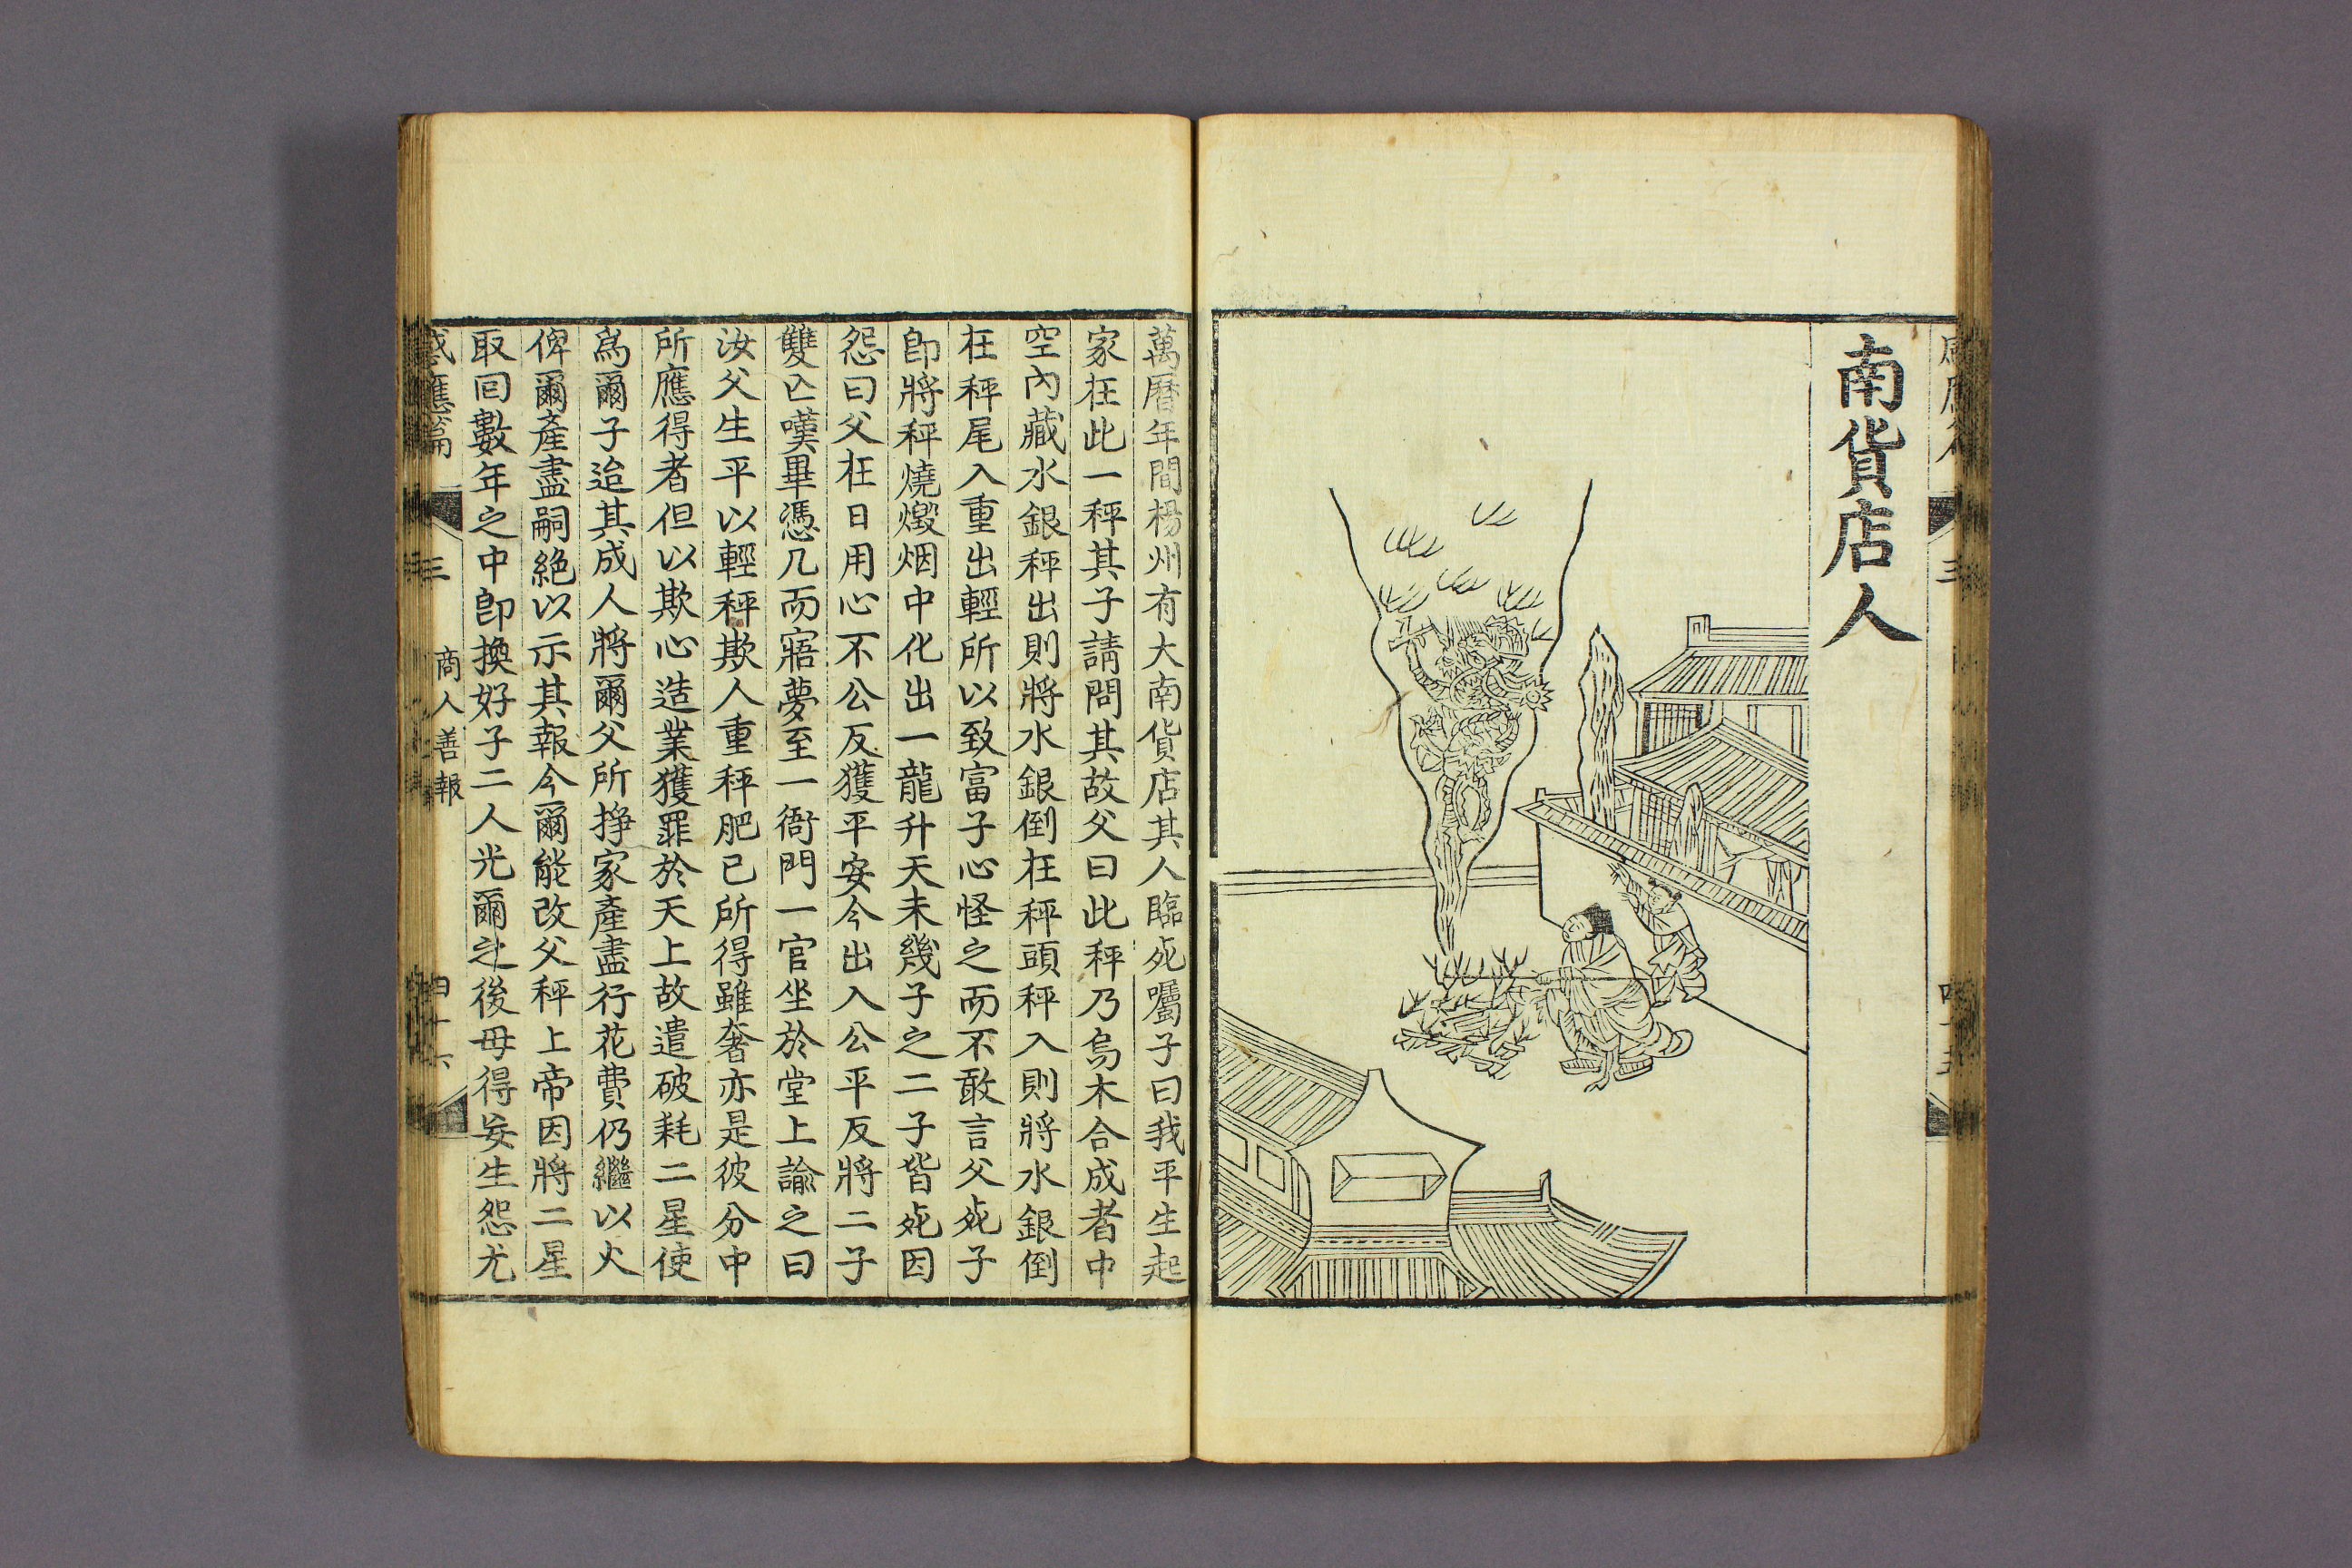 南貨店人
萬曆年間楊州有大南貨店其人臨死囑子曰我平生起
家在此一秤其子請問其故父曰此秤乃烏木合成者中
空內藏水銀秤出則將水銀倒在秤頭秤入則將水銀倒
在秤尾入重出輕所以致富子心怪之而不敢言父死子
卽將秤燒燬烟中化出一龍升天未幾子之二子皆死因
怨曰父在日用心不公反獲平安今出入公平反將二子
雙亡嘆畢憑几而寤夢至一衙門一官坐於堂上諭之曰
汝父生平以輕秤欺人重秤肥已所得雖奢亦是彼分中
所應得者但以欺心造業獲罪於天上故遣破耗二星使
爲爾子迨其成人將爾父所掙家產盡行花費仍繼以火
俾爾產盡嗣絶以示其報今爾能改父秤上帝因將二星
取回數年之中卽換好子二人光爾之後毋得妄生怨尤
感應篇 三 商人善報 四十六